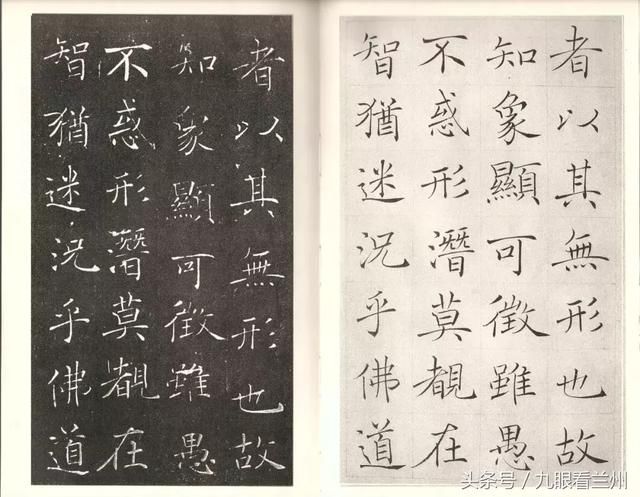 者以其無形也故
知象顯可徵雖愚
不惑形潛莫覩在
智猶迷況乎佛道
者以其無形也故
知象顯可徵雖愚
不惑形潛莫覩在
智猶迷況乎佛道
头条号 / 九眼看兰州